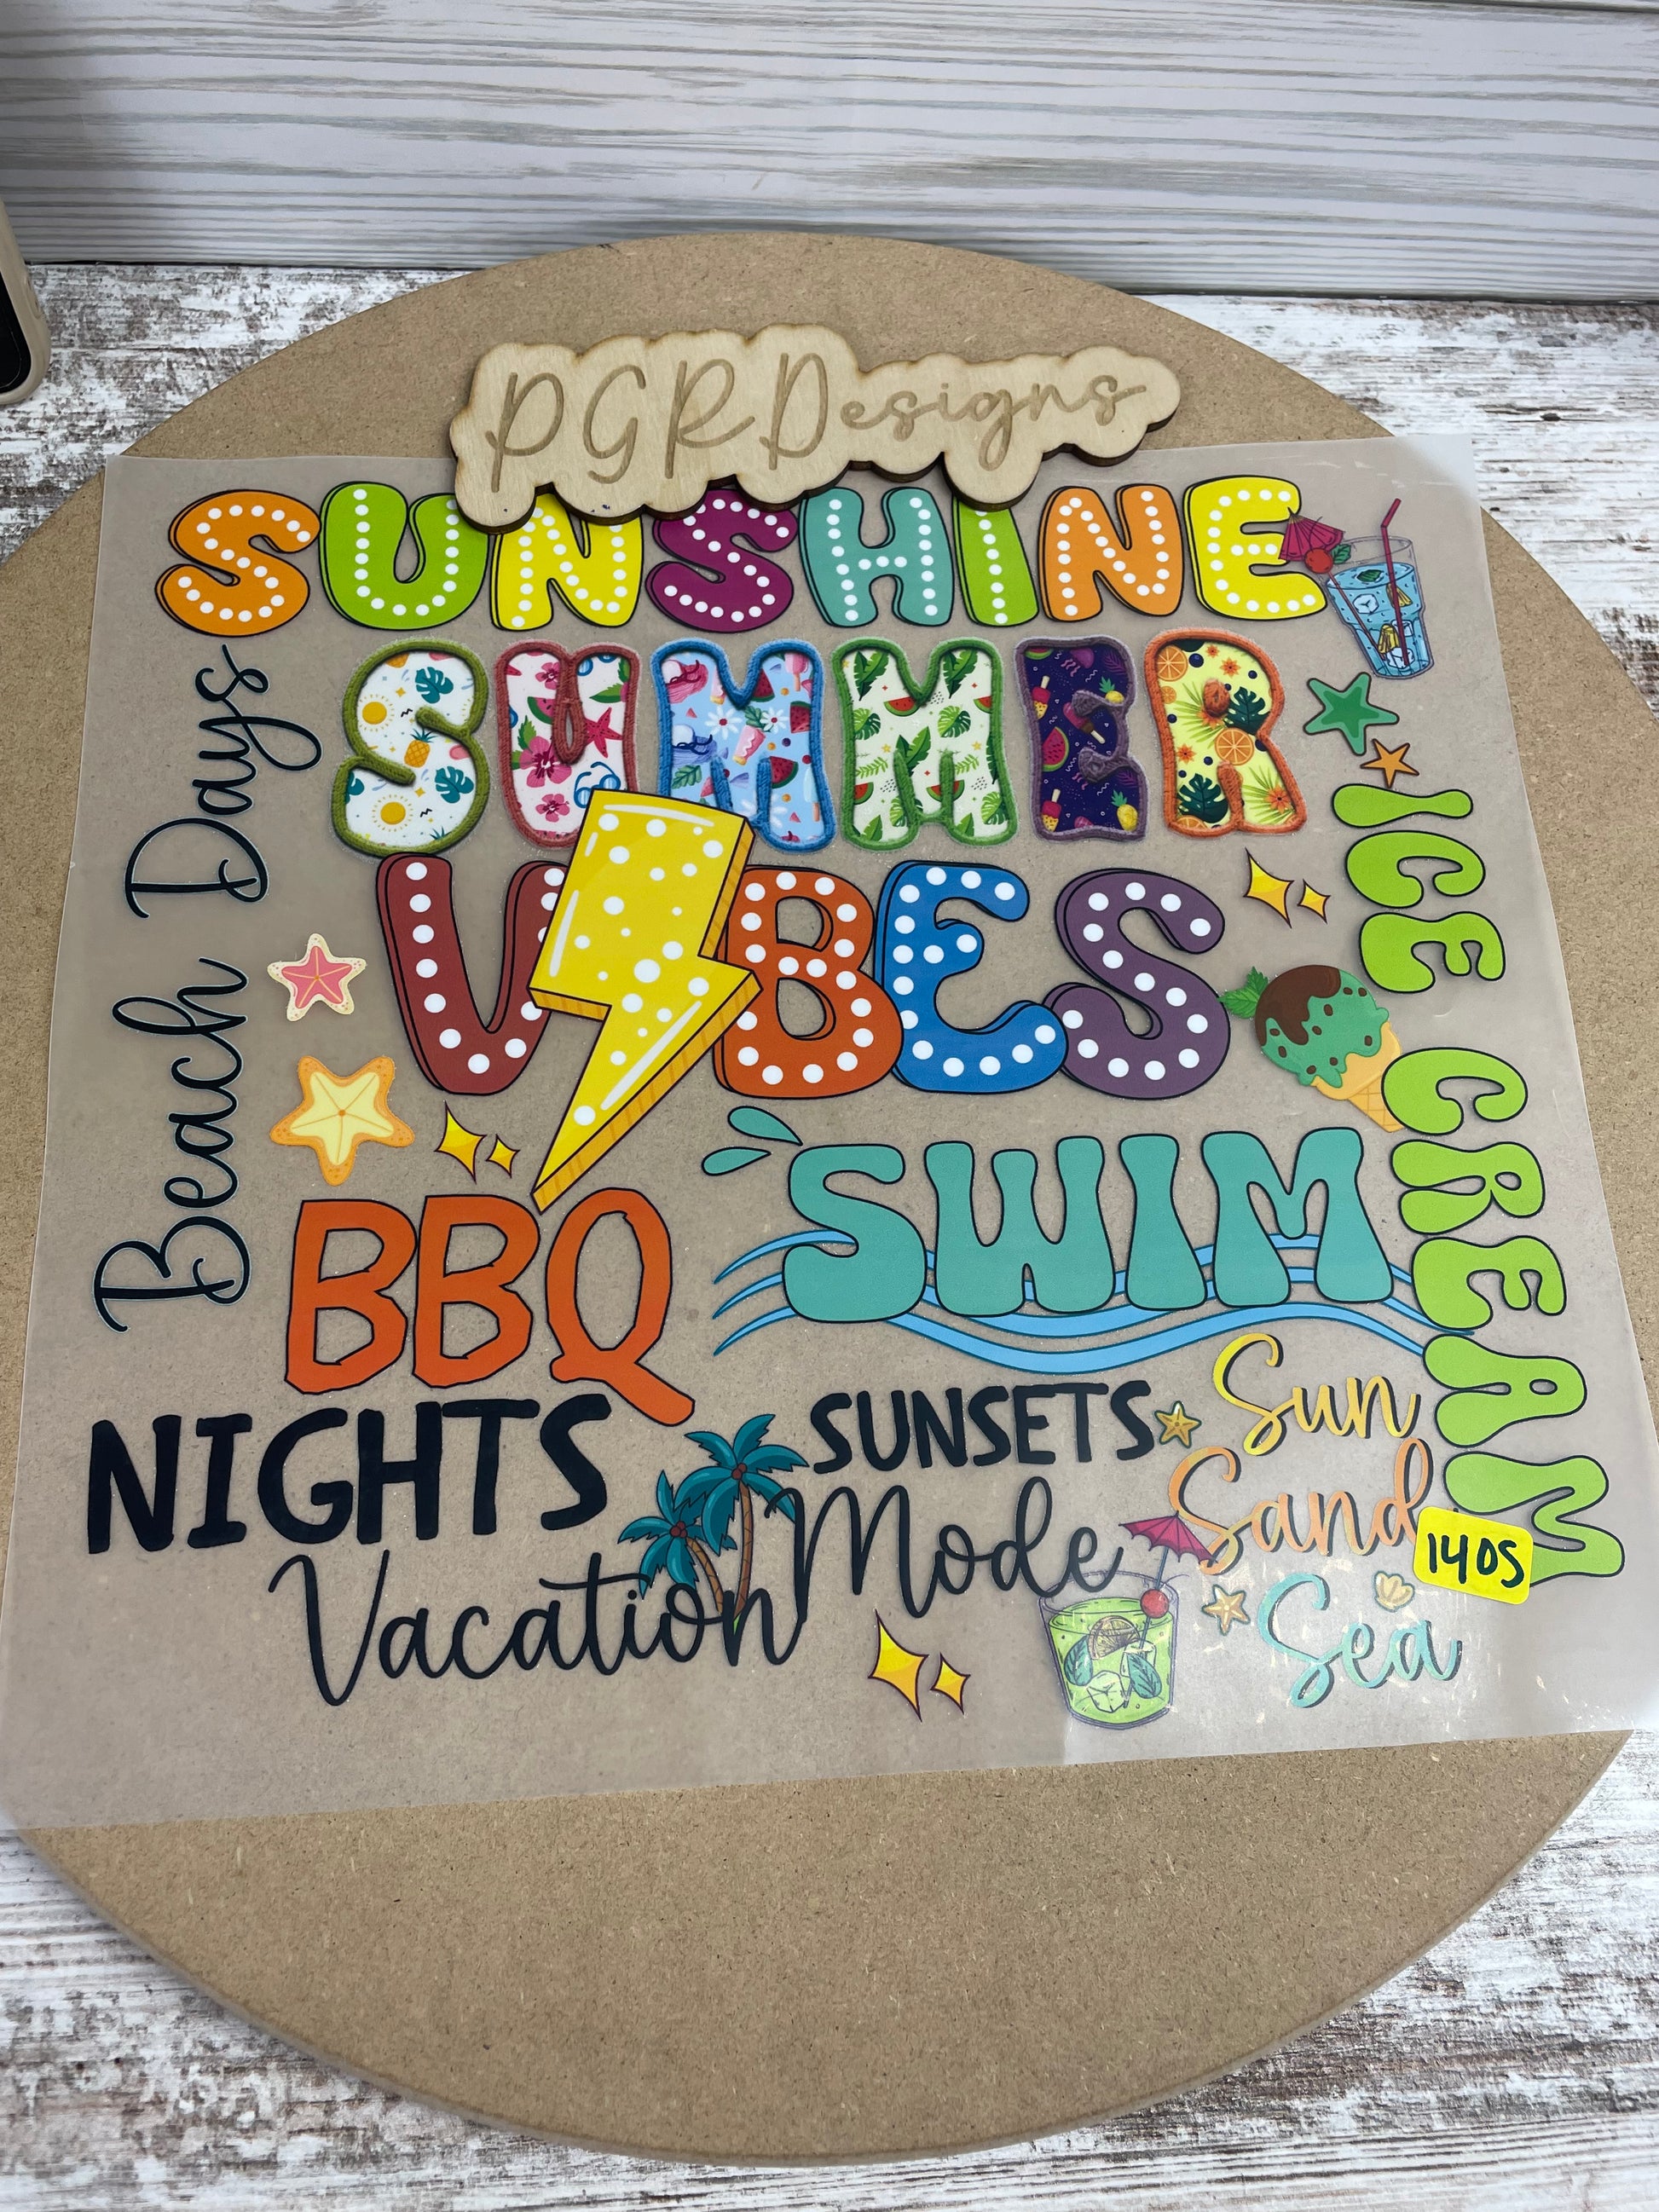 PGRDesigns
SUNSHINE
SUMMER
VIBES
Beach Days
ICE CREAM
BBQ
NIGHTS
SWIM
SUNSETS
Vacation Mode
Sun
Sand
Sea
140S